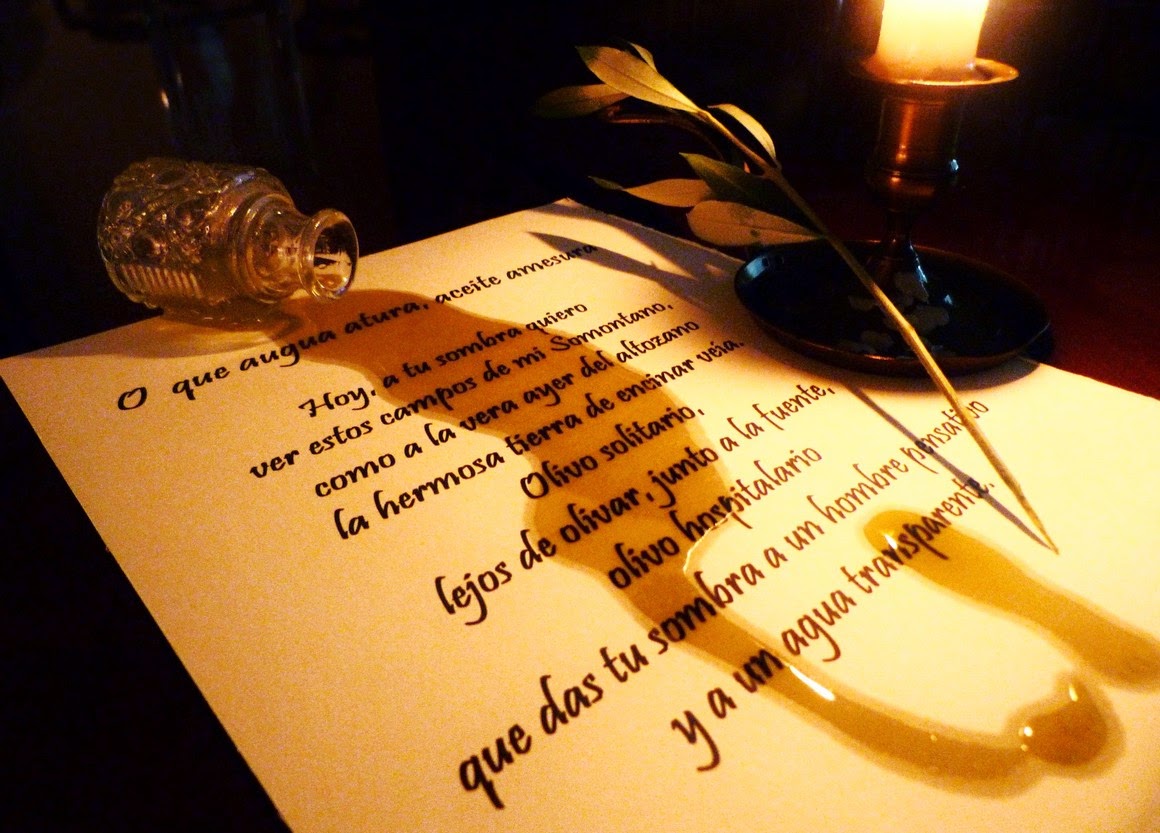 O que augua atura, aceite amesura
Hoy, a tu sombra quiero
ver estos campos de mi Somontano,
como a la vera ayer del altozano
la hermosa tierra de encinar veía.
Olivo solitario,
lejos de olivar, junto a la fuente,
olivo hospitalario
que das tu sombra a un hombre pensativo
y a un agua transparente.